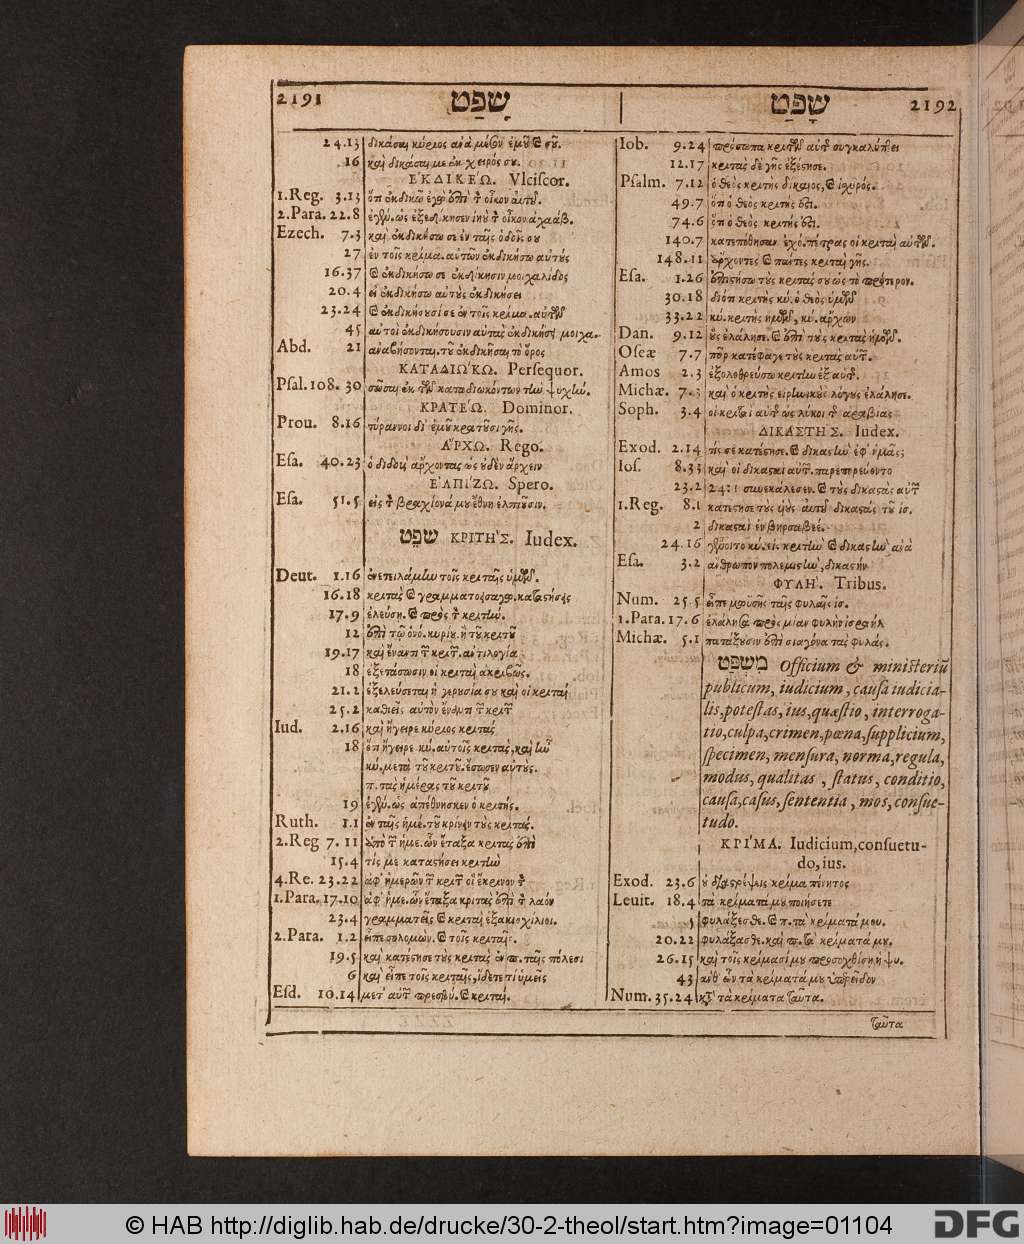 2191 שָׁפַט
24.13 δικάσαι κύριος ἀνὰ μέσον ἐμοῦ καὶ σοῦ.
16 καὶ δικάσαι με ἐκ χειρός σου.
ἘΚΔΙΚΕΏ. Vlciſcor.
1.Reg. 3.13 ὅτι ἐκδικῶ ἐγὼ ἐπὶ τὸν οἶκον αὐτοῦ.
2.Para. 22.8 ἐγένετο ὡς ἐξεδίκησεν ἰηοὺ τὸν οἶκον ἀχαάβ.
Ezech. 7.3 καὶ ἐκδικήσω σε ἐν ταῖς ὁδοῖς σου
27 ἐν τοῖς κρίμα. αὐτῶν ἐκδικήσω αὐτούς
16.37 καὶ ἐκδικήσω σε ἐκδίκησιν μοιχαλίδος
20.4 εἰ ἐκδικήσω αὐτοὺς ἐκδικήσει
23.24 καὶ ἐκδικήσουσί σε ἐν τοῖς κρίμα. αὐτῶν
45 αὐτοὶ ἐκδικήσουσιν αὐτὰς ἐκδικήσει μοιχα.
Abd. 21 ἀναβήσονται. τοῦ ἐκδικῆσαι τὸ ὄρος
ΚΑΤΑΔΙΏΚΩ. Perſequor.
Pſal. 108. 30 σῶσαι ἐκ τῶν καταδιωκόντων τὴν ψυχήν.
ΚΡΑΤΕΏ. Dominor.
Prou. 8.16 τύραννοι δι' ἐμοῦ κρατοῦσι γῆς.
ἌΡΧΩ. Rego.
Eſa. 40.23 ὁ διδοὺς ἄρχοντας ὡς οὐδὲν ἄρχειν
ἘΛΠΊΖΩ. Spero.
Eſa. 51.5 εἰς τὸν βραχίονά μου ἔθνη ἐλπιοῦσιν.
שֹׁפֵט ΚΡΙΤΗΣ. Iudex.
Deut. 1.16 ἐνετειλάμην τοῖς κριταῖς ὑμῶν.
16.18 κριτὰς καὶ γραμματοεισαγω. καταστήσεις
17.9 ἐλεύσῃ. καὶ πρὸς τὸν κριτήν.
12 ἐπὶ τῷ ὀνό. κυρίου. ἢ τοῦ κριτοῦ
19.17 καὶ ἔναντι τῶν κριτῶν. ἀντιλογία
18 ἐξετάσωσιν οἱ κριταὶ ἀκριβῶς.
21.2 ἐξελεύσεται ἡ γερουσία σου καὶ οἱ κριταί
25.2 καθιεῖς αὐτὸν ἔναντι τῶν κριτῶν
Iud. 2.16 καὶ ἤγειρε κύριος κριτάς
18 ὅτι ἤγειρε κύ. αὐτοῖς κριτὰς, καὶ ἦν
κύ. μετὰ τοῦ κριτοῦ. ἔσωσεν αὐτούς.
π. τὰς ἡμέρας τοῦ κριτοῦ
19 ἐγένετο ὡς ἀπέθνησκεν ὁ κριτής.
Ruth. 1.1 ἐν ταῖς ἡμέ. τοῦ κρίνειν τοὺς κριτάς.
2.Reg 7. 11 ἀπὸ τῶν ἡμε. ὧν ἔταξα κριτὰς ἐπὶ
15.4 τίς με καταστήσει κριτὴν
4.Re. 23.22 ἀφ' ἡμερῶν τῶν κριτῶν οἳ ἔκρινον τὸν
1.Para. 17.10 ἀφ' ἡμε. ὧν ἔταξα κριτὰς ἐπὶ τὸν λαόν
23.4 γραμματεῖς καὶ κριταὶ ἑξακισχίλιοι.
2.Para. 1.2 εἶπε σολομών. καὶ τοῖς κριταῖς.
19.5 καὶ κατέστησε τοὺς κριτὰς ἐν π. ταῖς πόλεσι
6 καὶ εἶπε τοῖς κριταῖς, ἴδετε τί ὑμεῖς
Eſd. 10.14 μετ' αὐτῶν πρεσβύ. καὶ κριταί.
שָׁפַט 2192
Iob. 9.24 πρόσωπα κριτῶν αὐτῆς συγκαλύπτει
12.17 κριτὰς δὲ γῆς ἐξέστησε.
Pſalm. 7.12 ὁ θεὸς κριτὴς δίκαιος, καὶ ἰσχυρός.
49.7 ὅτι ὁ θεὸς κριτής ἐστι.
74.6 ὅτι ὁ θεὸς κριτής ἐστι.
140.7 κατεπόθησαν ἐχό. πέτρας οἱ κριταὶ αὐτῶν.
148.11 ἄρχοντες καὶ πάντες κριταὶ γῆς.
Eſa. 1.26 ἐπιστήσω τοὺς κριτάς σου ὡς τὸ πρότερον.
30.18 διότι κριτὴς κύ. ὁ θεὸς ὑμῶν
33.22 κύ. κριτὴς ἡμῶν, κύ. ἄρχων
Dan. 9.12 οὓς ἐλάλησε. καὶ ἐπὶ τοὺς κριτὰς ἡμῶν.
Oſeæ 7.7 πῦρ κατέφαγε τοὺς κριτὰς αὐτῶν.
Amos 2.3 ἐξολοθρεύσω κριτὴν ἐξ αὐτῆς.
Michæ. 7.3 καὶ ὁ κριτὴς εἰρηνικοὺς λόγους ἐλάλησε.
Soph. 3.4 οἱ κριταὶ αὐτῆς ὡς λύκοι τῆς ἀραβίας
ΔΙΚΑΣΤΗΣ. Iudex.
Exod. 2.14 τίς σε κατέστησε. καὶ δικαστὴν ἐφ' ἡμᾶς;
Ioſ. 8.33 καὶ οἱ δικασταὶ αὐτῶν. παρεπορεύοντο
23.2 24:1 συνεκάλεσεν. καὶ τοὺς δικαστὰς αὐτῶν
1.Reg. 8.1 κατέστησε τοὺς υἱοὺς αὐτοῦ δικαστὰς τοῦ ἰσ.
2 δικασταὶ ἐν βηρσαβεέ.
24.16 γένοιτο κύ. εἰς κριτὴν καὶ δικαστὴν ἀνὰ
Eſa. 3.2 ἄνθρωπον πολεμιστὴν, δικαστήν
ΦΥΛΗ. Tribus.
Num. 25 5 εἶπε μωϋσῆς ταῖς φυλαῖς ἰσ.
1.Para. 17.6 ἐλάλησα πρὸς μίαν φυλὴν ἰσραήλ
Michæ. 5.1 πατάξουσιν ἐπὶ σιαγόνα τὰς φυλάς.
מִשְׁפָּט Officium & miniſteriū
publicum, iudicium, cauſa iudicia-
lis, poteſtas, ius, quæſtio, interroga-
tio, culpa, crimen, pœna, ſupplicium,
ſpecimen, menſura, norma, regula,
modus, qualitas, ſtatus, conditio,
cauſa, caſus, ſententia, mos, conſue-
tudo.
ΚΡΙΜΑ. Iudicium, conſuetu-
do, ius.
Exod. 23.6 οὐ διαστρέψεις κρίμα πένητος
Leuit. 18.4 τὰ κρίματά μου ποιήσετε
5 φυλάξεσθε. καὶ π. τὰ κρίματά μου.
20.22 φυλάξασθε. καὶ π. τὰ κρίματά μου.
26.15 καὶ τοῖς κρίμασί μου προσοχθίσῃ ἡ ψυ.
43 ἀνθ' ὧν τὰ κρίματά μου ὑπερεῖδον
Num. 35.24 κατὰ τὰ κρίματα ταῦτα.
ταῦτα
© HAB http://diglib.hab.de/drucke/30-2-theol/start.htm?image=01104
DFG